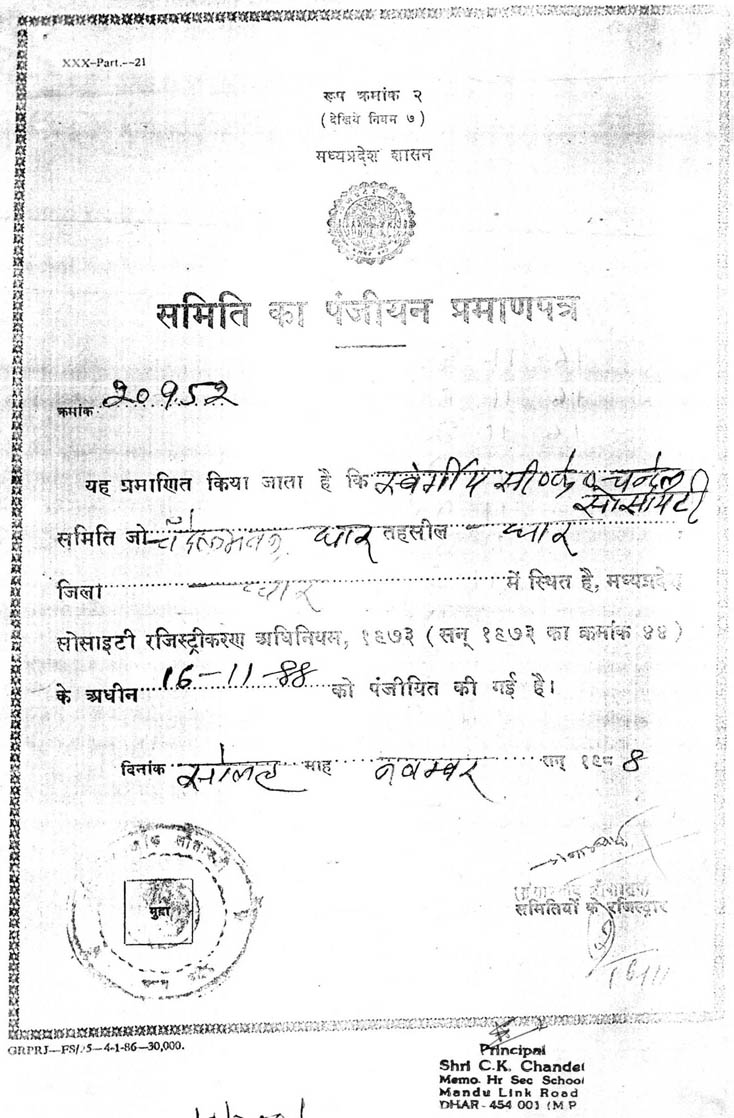 XXX-Part.--21
रूप क्रमांक २
( देखिये नियम ७ )
मध्यप्रदेश शासन
समिति का पंजीयन प्रमाणपत्र
क्रमांक 20952
यह प्रमाणित किया जाता है कि स्वर्गीय सी०के० चन्देल
सोसायटी
समिति जो धार तहसील धार
जिला धार में स्थित है, मध्यप्रदेश
सोसाइटी रजिस्ट्रीकरण अधिनियम, १९७३ ( सन् १९७३ का क्रमांक ४४ )
के अधीन 16-11-88 को पंजीयित की गई है।
दिनांक सोलह माह नवम्बर सन् १९८8
मुद्रा
समितियों के रजिस्ट्रार
16/11
GRPRJ—FS/ 5—4-1-86—30,000.
Principal
Shri C.K. Chandel
Memo. Hr Sec School
Mandu Link Road
DHAR - 454 001 (M P